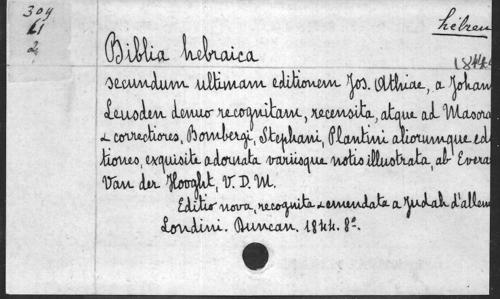 309
61
2
hébreu
Biblia hebraica
1844
secundum ultimam editionem Jos. Athiae, a Johan
Leusden denuo recognitam, recensita, atque ad Masora
& correctiores, Bombergi, Stephani, Plantini aliorumque edi
tiones, exquisite adornata variisque notis illustrata, ab Evera
Van der Hooght, V. D. M.
Editio nova, recognita & emendata a Judah d'allem
Londini. Duncan. 1844. 8º.